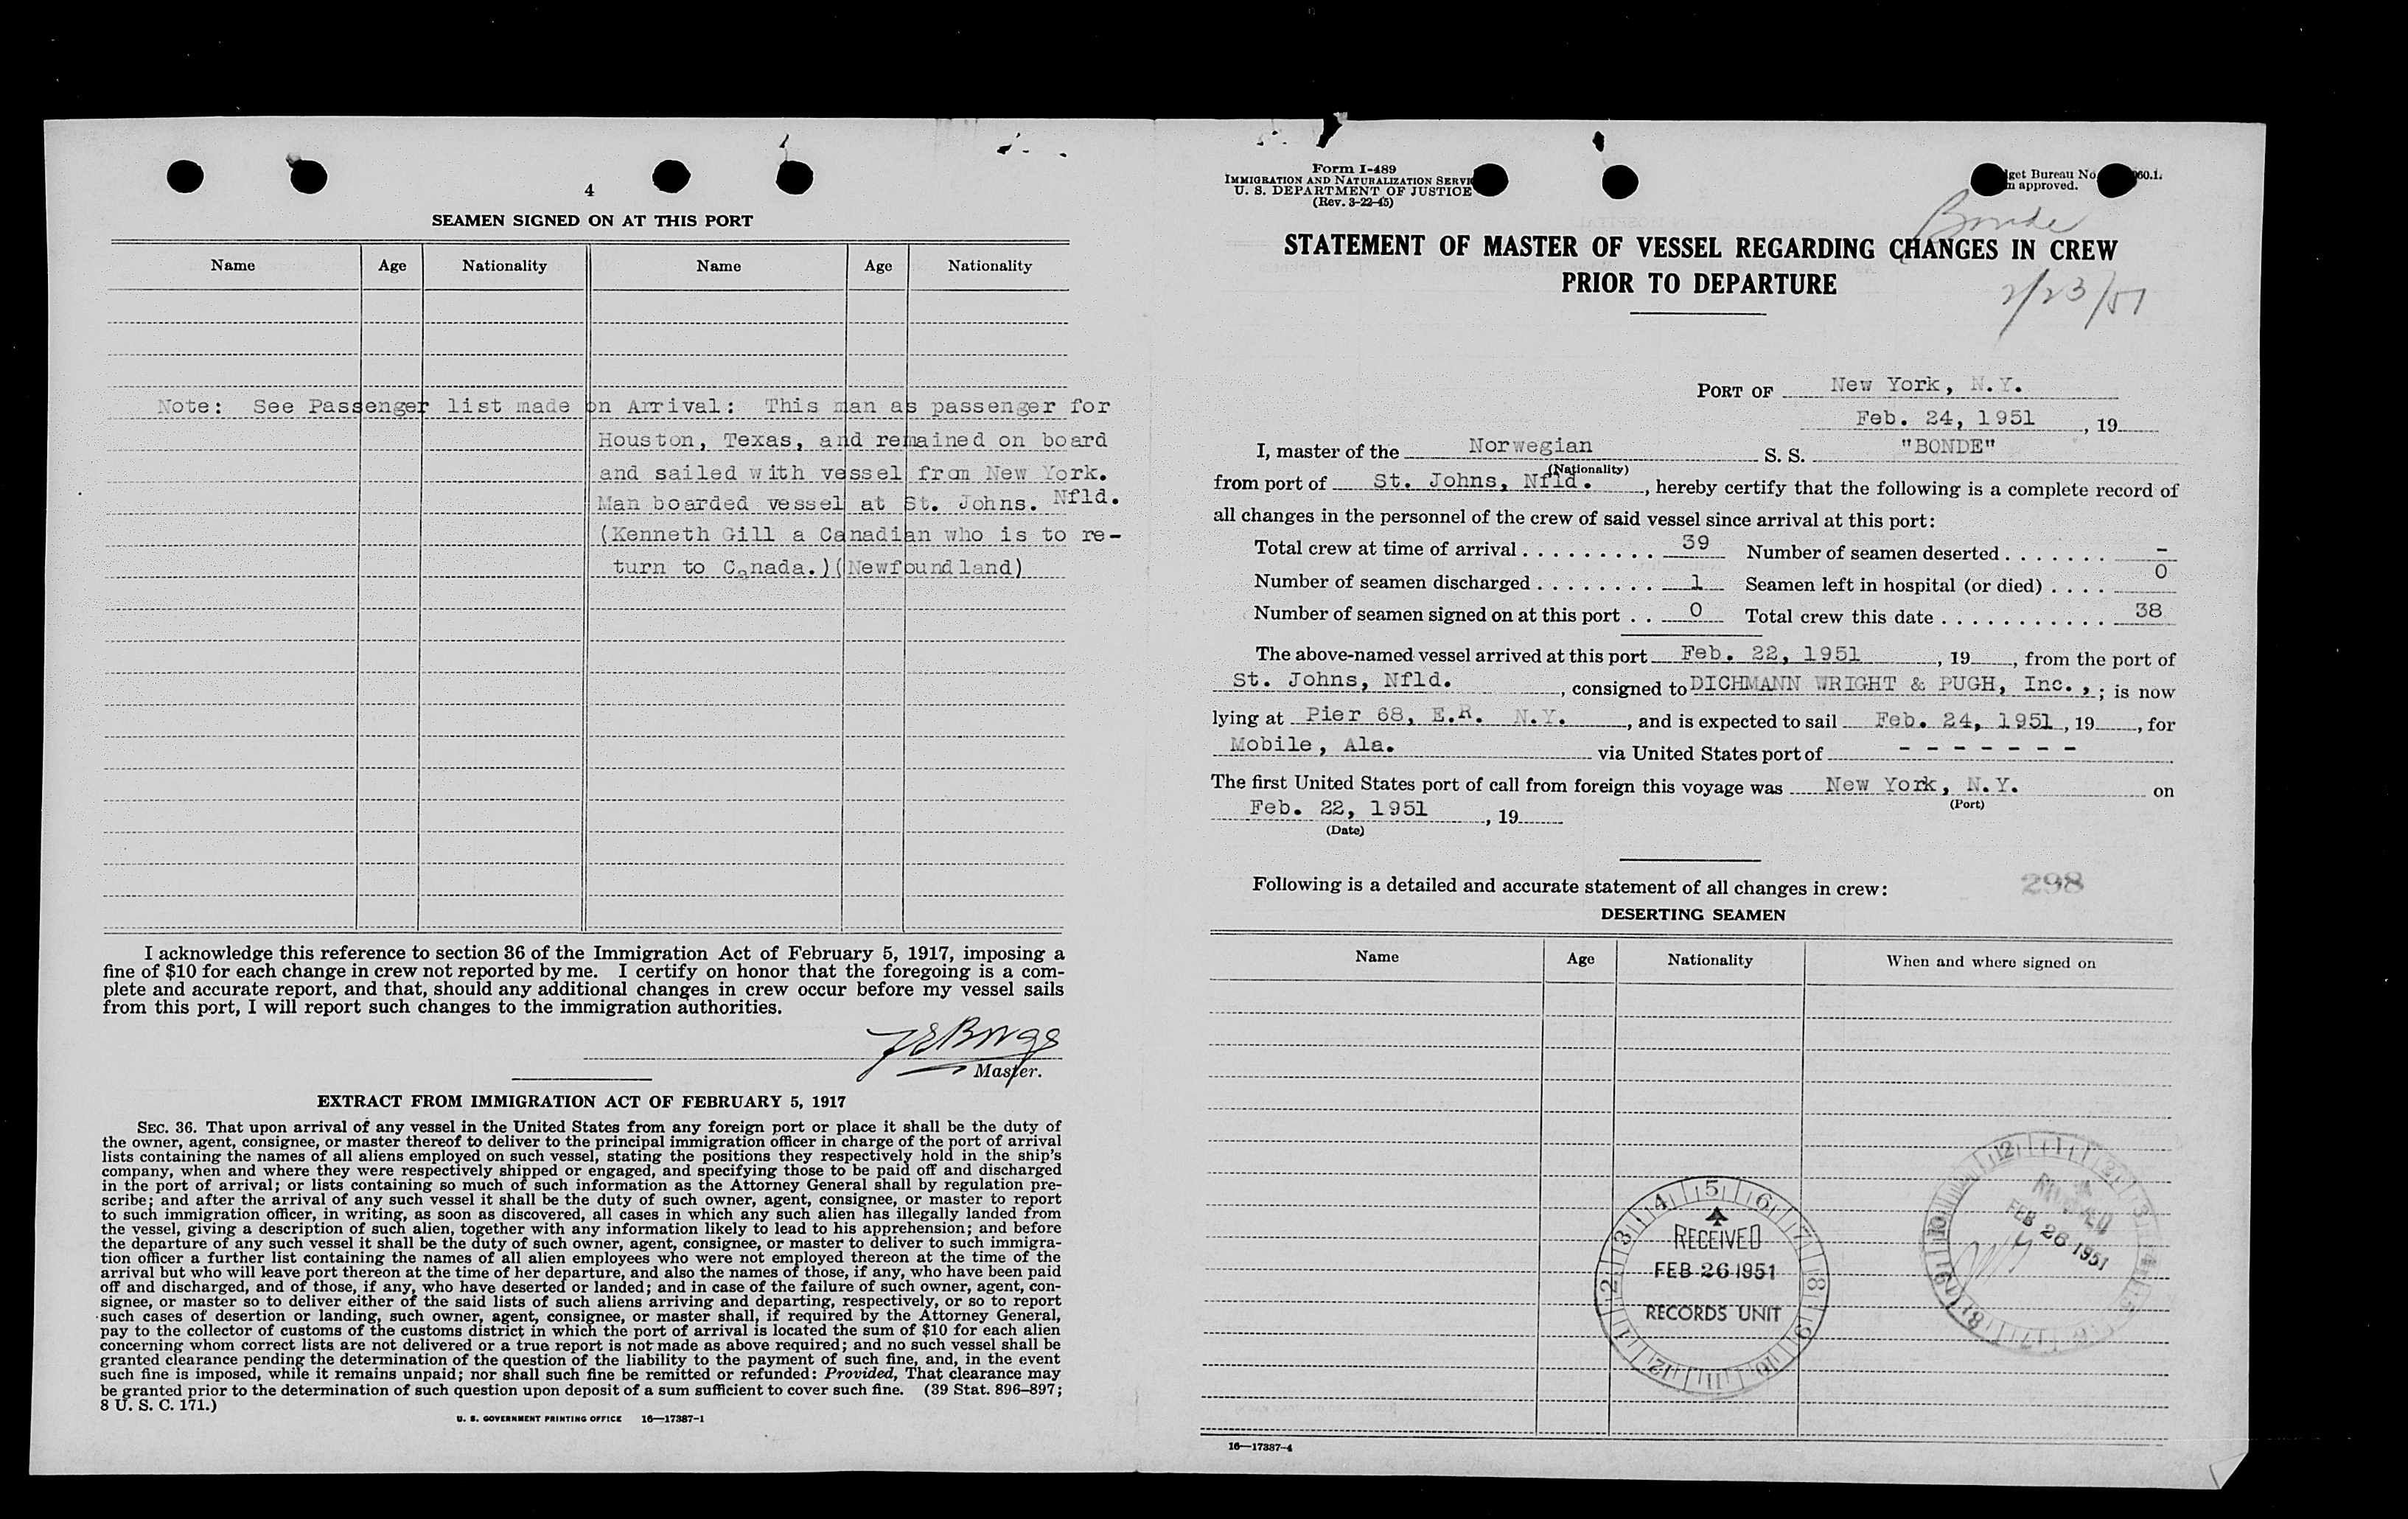 4
SEAMEN SIGNED ON AT THIS PORT
Name Age Nationality Name Age Nationality
Note: See Passenger list made on Arrival: This man as passenger for
Houston, Texas, and remained on board
and sailed with vessel from New York.
Man boarded vessel at St. Johns. Nfld.
(Kenneth Gill a Canadian who is to re-
turn to Canada.)(Newfoundland)
I acknowledge this reference to section 36 of the Immigration Act of February 5, 1917, imposing a
fine of $10 for each change in crew not reported by me. I certify on honor that the foregoing is a com-
plete and accurate report, and that, should any additional changes in crew occur before my vessel sails
from this port, I will report such changes to the immigration authorities.
Master.
EXTRACT FROM IMMIGRATION ACT OF FEBRUARY 5, 1917
SEC. 36. That upon arrival of any vessel in the United States from any foreign port or place it shall be the duty of
the owner, agent, consignee, or master thereof to deliver to the principal immigration officer in charge of the port of arrival
lists containing the names of all aliens employed on such vessel, stating the positions they respectively hold in the ship's
company, when and where they were respectively shipped or engaged, and specifying those to be paid off and discharged
in the port of arrival; or lists containing so much of such information as the Attorney General shall by regulation pre-
scribe; and after the arrival of any such vessel it shall be the duty of such owner, agent, consignee, or master to report
to such immigration officer, in writing, as soon as discovered, all cases in which any such alien has illegally landed from
the vessel, giving a description of such alien, together with any information likely to lead to his apprehension; and before
the departure of any such vessel it shall be the duty of such owner, agent, consignee, or master to deliver to such immigra-
tion officer a further list containing the names of all alien employees who were not employed thereon at the time of the
arrival but who will leave port thereon at the time of her departure, and also the names of those, if any, who have been paid
off and discharged, and of those, if any, who have deserted or landed; and in case of the failure of such owner, agent, con-
signee, or master so to deliver either of the said lists of such aliens arriving and departing, respectively, or so to report
such cases of desertion or landing, such owner, agent, consignee, or master shall, if required by the Attorney General,
pay to the collector of customs of the customs district in which the port of arrival is located the sum of $10 for each alien
concerning whom correct lists are not delivered or a true report is not made as above required; and no such vessel shall be
granted clearance pending the determination of the question of the liability to the payment of such fine, and, in the event
such fine is imposed, while it remains unpaid; nor shall such fine be remitted or refunded: Provided, That clearance may
be granted prior to the determination of such question upon deposit of a sum sufficient to cover such fine. (39 Stat. 896–897;
8 U. S. C. 171.)
U. S. GOVERNMENT PRINTING OFFICE 16—17387-1
Form I-489
IMMIGRATION AND NATURALIZATION SERVI
U. S. DEPARTMENT OF JUSTICE
(Rev. 3-22-45)
get Bureau No. 60.1.
m approved.
Bonde
STATEMENT OF MASTER OF VESSEL REGARDING CHANGES IN CREW
PRIOR TO DEPARTURE
2/23/51
PORT OF New York, N.Y.
Feb. 24, 1951, 19
I, master of the Norwegian S. S. "BONDE"
(Nationality)
from port of St. Johns, Nfld., hereby certify that the following is a complete record of
all changes in the personnel of the crew of said vessel since arrival at this port:
Total crew at time of arrival . . . . . . . . . 39 Number of seamen deserted . . . . . . . –
Number of seamen discharged . . . . . . . . 1 Seamen left in hospital (or died) . . . . 0
Number of seamen signed on at this port . . 0 Total crew this date . . . . . . . . . . . 38
The above-named vessel arrived at this port Feb. 22, 1951, 19, from the port of
St. Johns, Nfld., consigned to DICHMANN WRIGHT & PUGH, Inc.,; is now
lying at Pier 68, E.R. N.Y., and is expected to sail Feb. 24, 1951, 19, for
Mobile, Ala. via United States port of - - - - - - -
The first United States port of call from foreign this voyage was New York, N.Y. on
(Port)
Feb. 22, 1951, 19
(Date)
Following is a detailed and accurate statement of all changes in crew:
298
DESERTING SEAMEN
Name Age Nationality When and where signed on
5 6 7 8 9 10 11 12 1 2 3 4
RECEIVED
FEB 26 1951
RECORDS UNIT
FEB 26 1951
16—17387-4